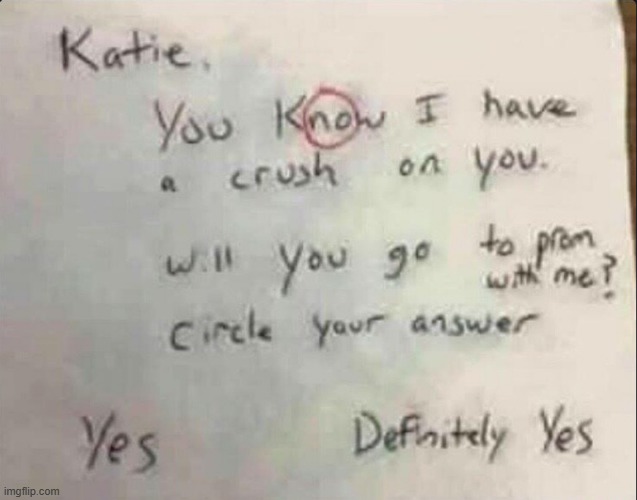 Katie.
You Know I have
a crush on you.
will you go to prom
with me?
Circle your answer
Yes Definitely Yes
imgflip.com